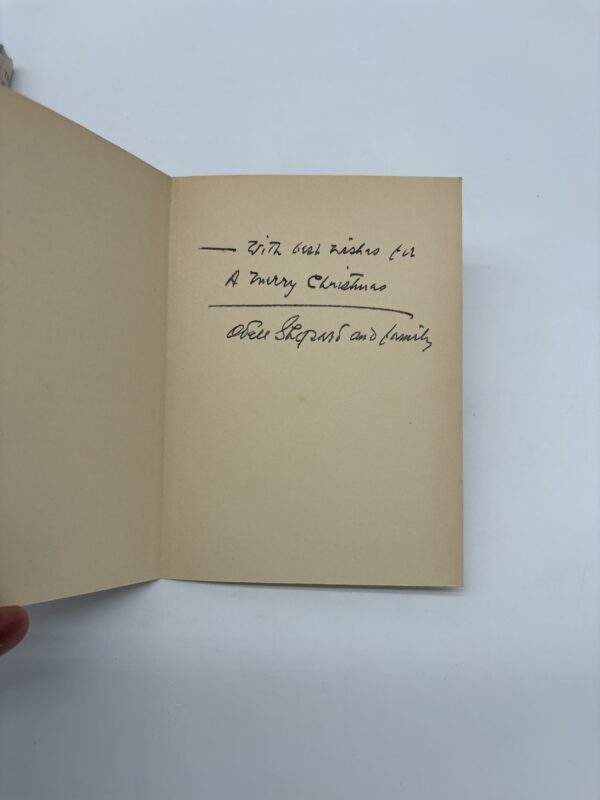 — With best wishes for
A Merry Christmas
Odell Shepard and family